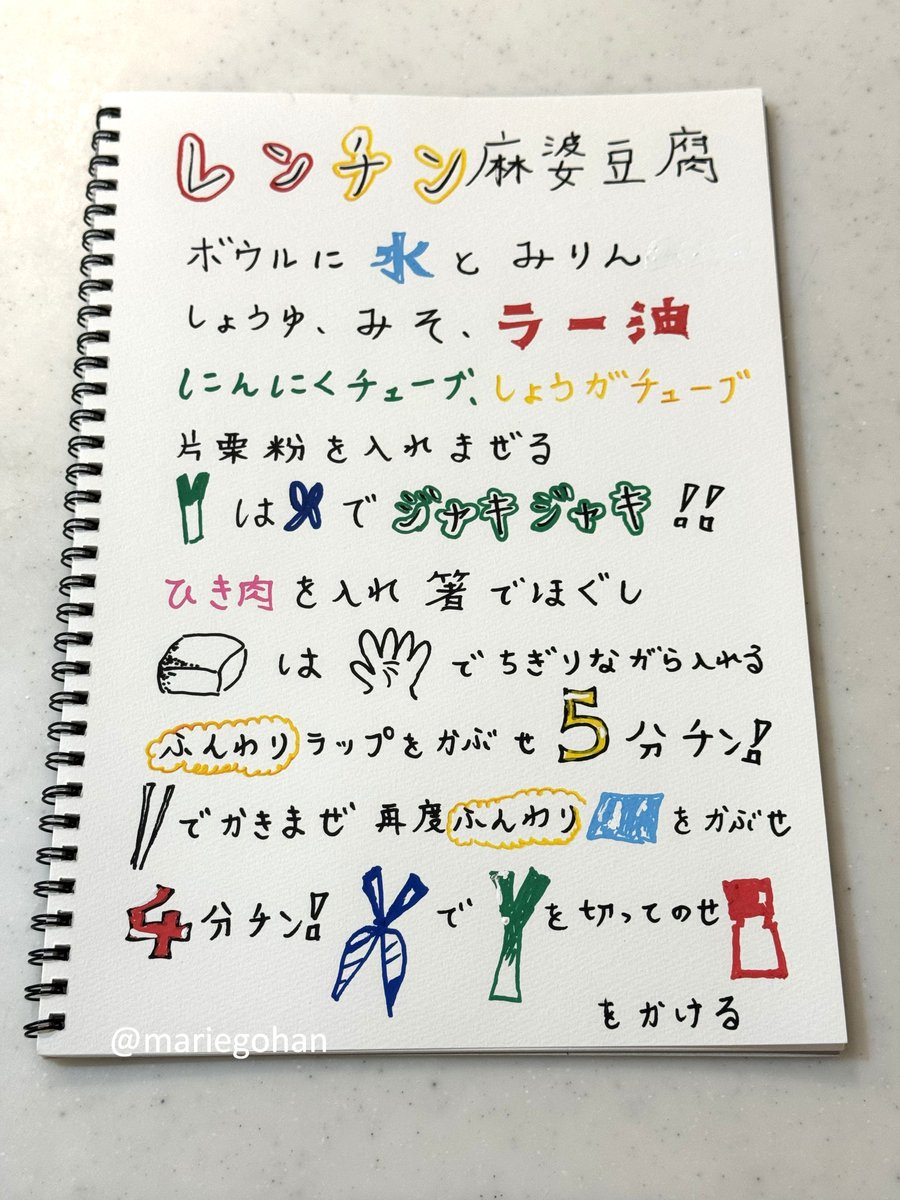 レンチン麻婆豆腐
ボウルに水とみりん
しょうゆ、みそ、ラー油
にんにくチューブ、しょうがチューブ
片栗粉を入れまぜる
は で ジャキジャキ!!
ひき肉を入れ箸でほぐし
は でちぎりながら入れる
ふんわりラップをかぶせ5分チン!
でかきまぜ再度ふんわり をかぶせ
4分チン! で を切ってのせ
をかける
@mariegohan